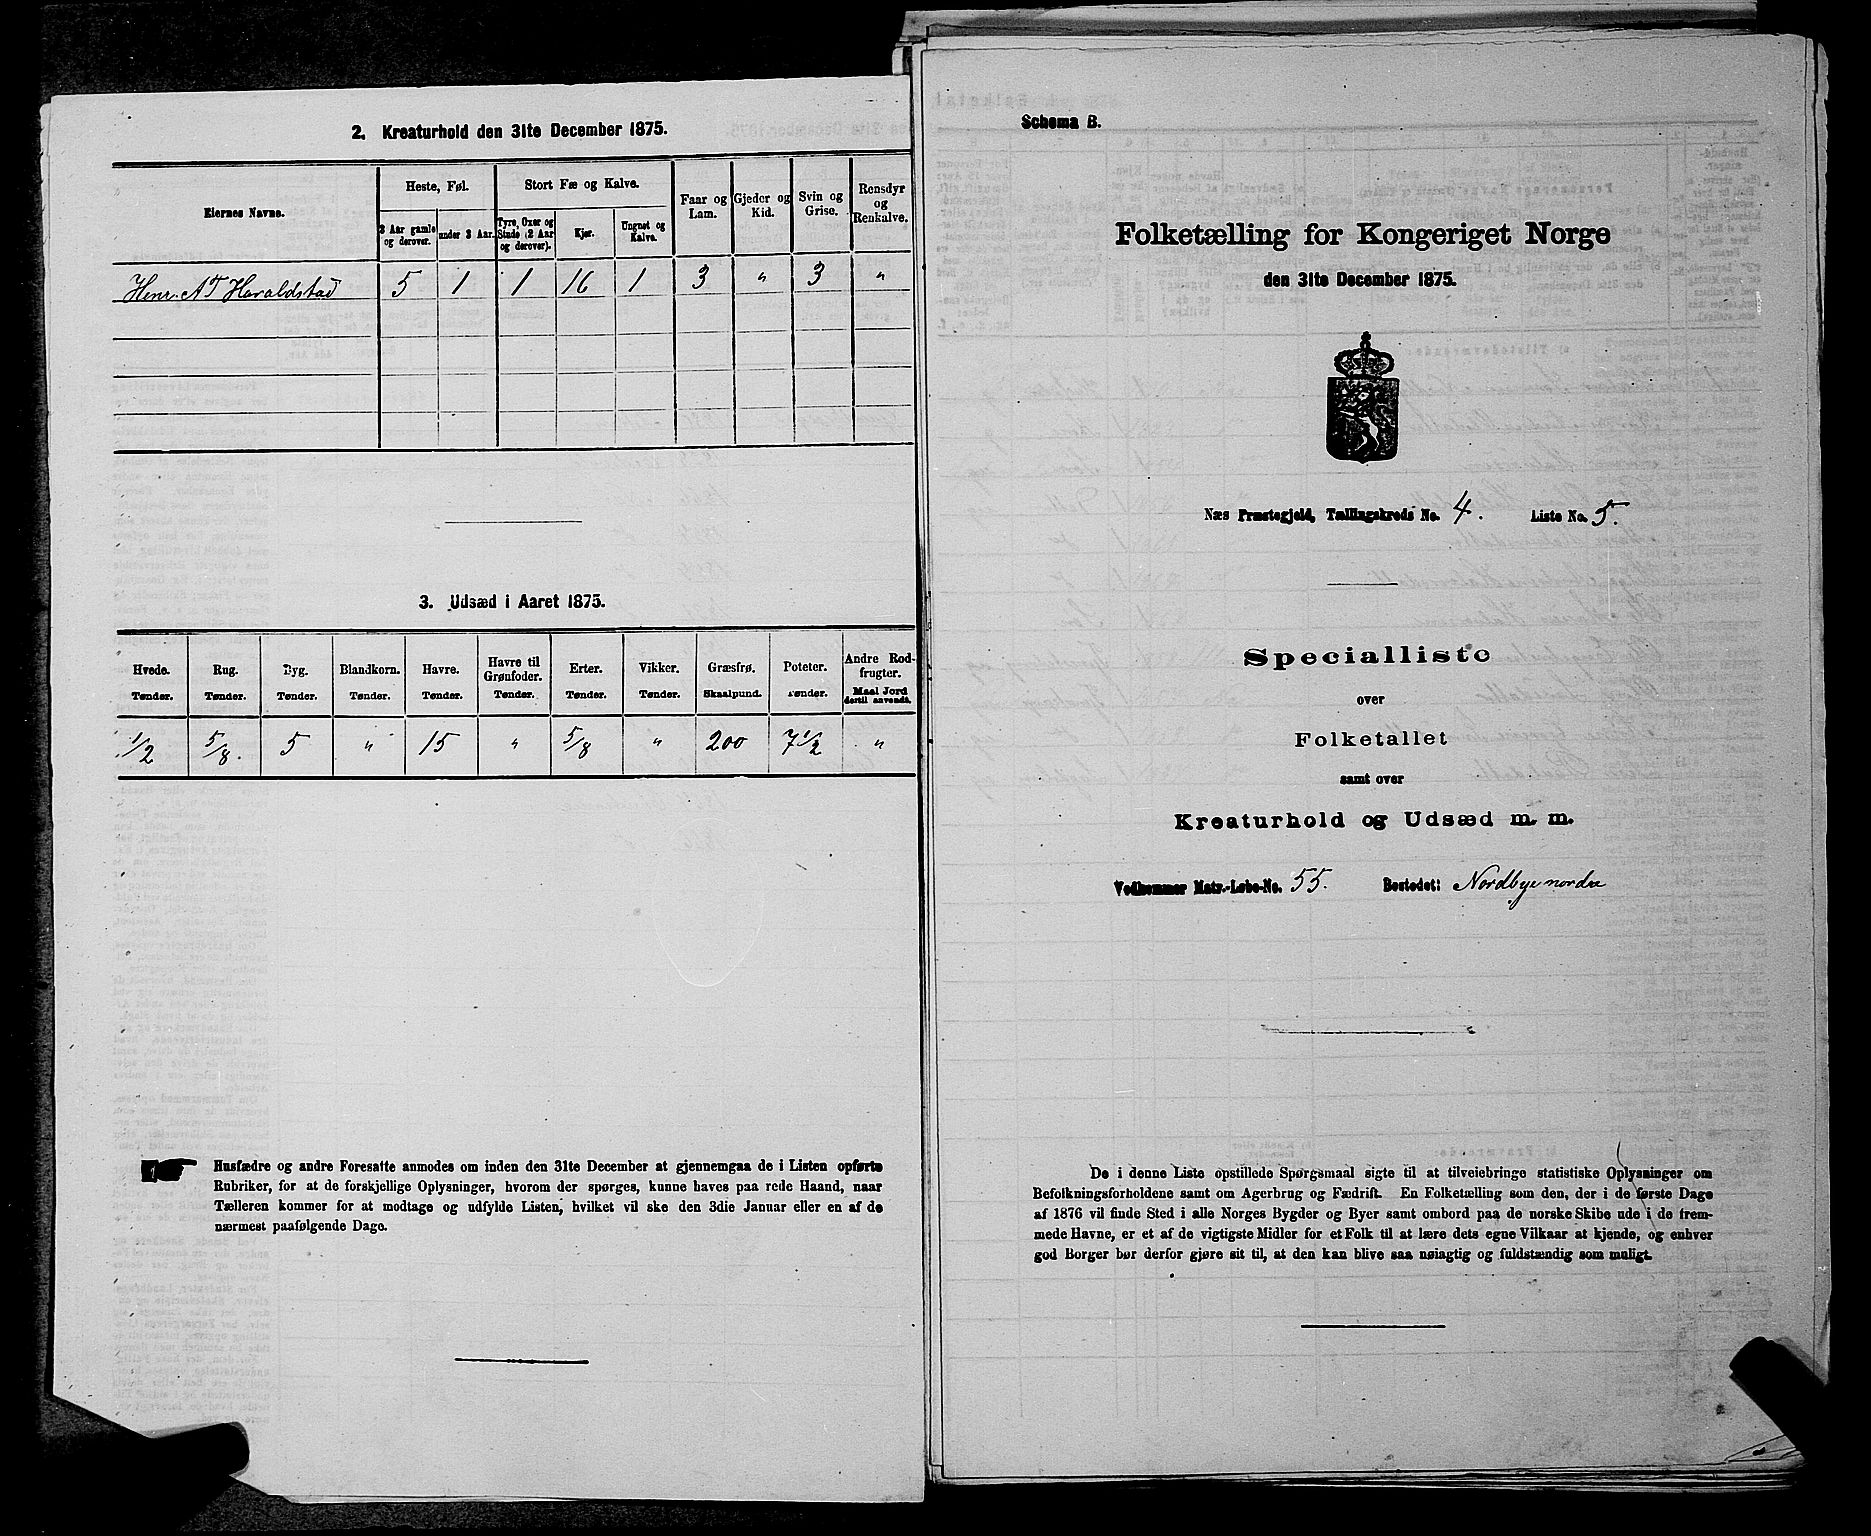 2. Kreaturhold den 31te December 1875.
Eiernes Navne.
Heste, Føl.
Stort Fæ og Kalve.
Faar og Lam.
Gjeder og Kid.
Svin og Grise.
Rensdyr og Renkalve.
3 Aar gamle og derover.
under 3 Aar.
Tyre, Oxer og Stude (2 Aar og derover).
Kjør.
Ungnøt og Kalve.
Henr. A T Haraldstad 5 1 1 16 1 3 " 3 "
3. Udsæd i Aaret 1875.
Hvede. Rug. Byg. Blandkorn. Havre. Havre til Grønfoder. Erter. Vikker. Græsfrø. Poteter. Andre Rodfrugter.
Tønder. Tønder. Tønder. Tønder. Tønder. Tønder. Tønder. Tønder. Skaalpund. Tønder. Maal Jord dertil anvendt.
1/2 5/8. 5 " 15 " 5/8 " 200 7 1/2 "
Husfædre og andre Foresatte anmodes om inden den 31te December at gjennemgaa de i Listen opførte
Rubriker, for at de forskjellige Oplysninger, hvorom der spørges, kunne haves paa rede Haand, naar
Tælleren kommer for at modtage og udfylde Listen, hvilket vil ske den 3die Januar eller en af de
nærmest paafølgende Dage.
Schema B.
Folketælling for Kongeriget Norge
den 31te December 1875.
Næs Præstegjeld, Tællingskreds No. 4. Liste No. 5.
Specialliste
over
Folketallet
samt over
Kreaturhold og Udsæd m. m.
Vedkommer Matr.-Løbe-No. 55. Bostedet: Nordbye nordre
De i denne Liste opstillede Spørgsmaal sigte til at tilveiebringe statistiske Oplysninger om
Befolkningsforholdene samt om Agerbrug og Fædrift. En Folketælling som den, der i de første Dage
af 1876 vil finde Sted i alle Norges Bygder og Byer samt ombord paa de norske Skibe ude i de frem-
mede Havne, er et af de vigtigste Midler for et Folk til at lære dets egne Vilkaar at kjende, og enhver
god Borger bør derfor gjøre sit til, at den kan blive saa nøiagtig og fuldstændig som muligt.